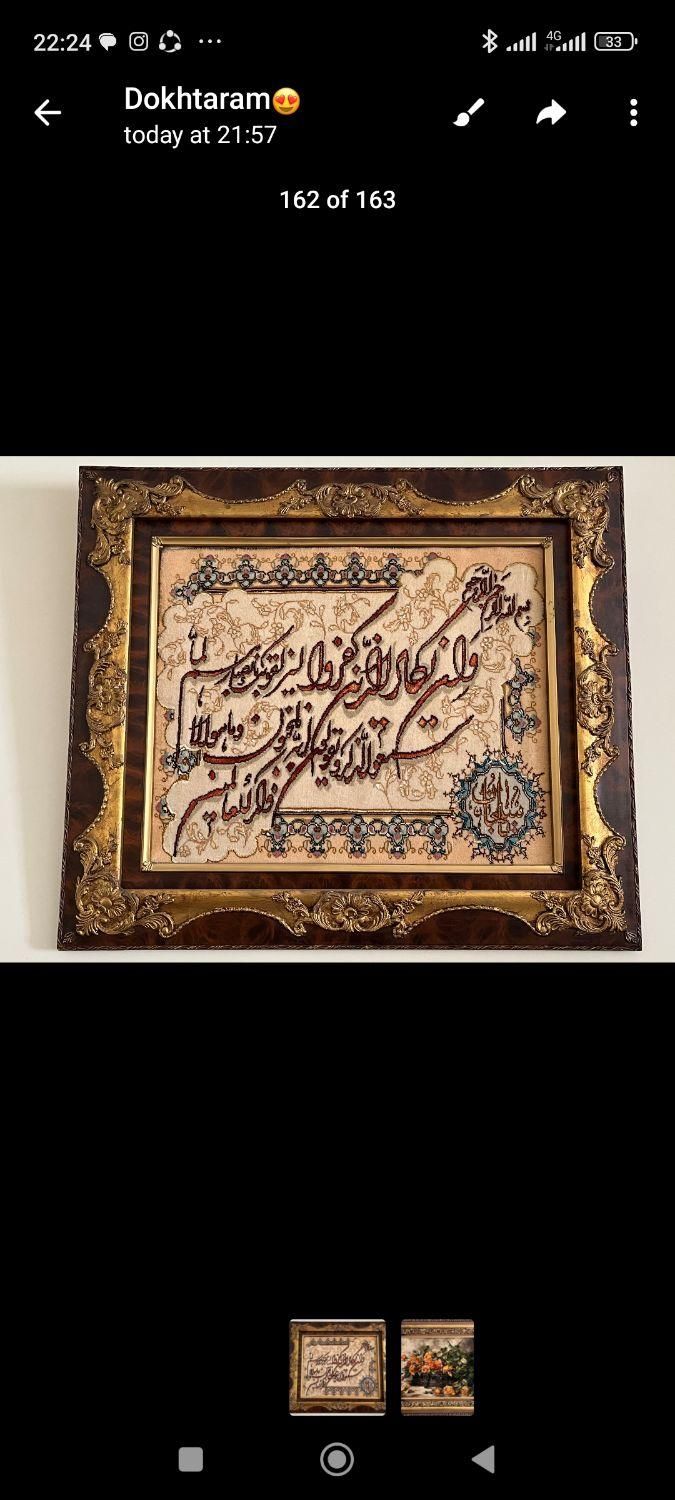 22:24
4G
33
Dokhtaram😍
today at 21:57
162 of 163
بسم الله الرحمن الرحیم
وان یکاد الذین کفروا لیزلقونک بابصارهم لما
سمعوا الذکر و یقولون انه لمجنون و ما هو الا
ذکر للعالمین